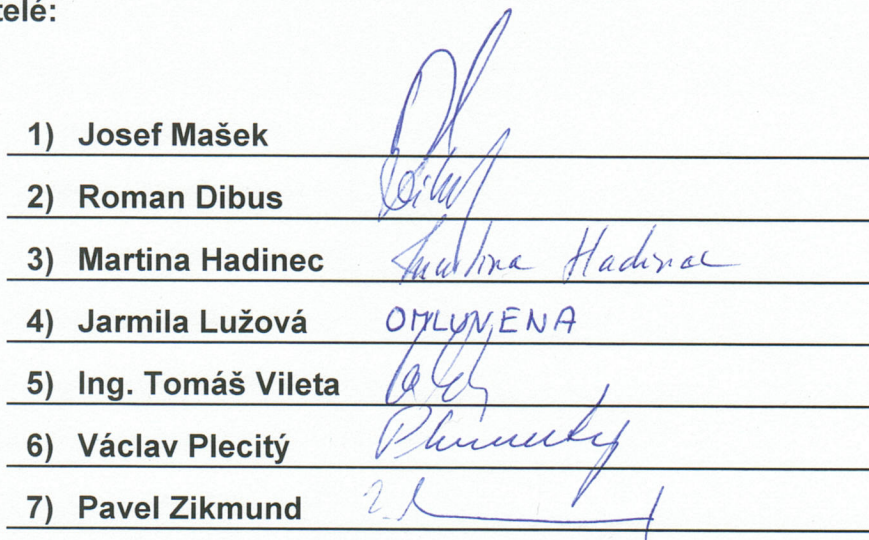 telé:
1) Josef Mašek
2) Roman Dibus
3) Martina Hadinec Martina Hadinec
4) Jarmila Lužová OMLUVENA
5) Ing. Tomáš Vileta
6) Václav Plecitý
7) Pavel Zikmund